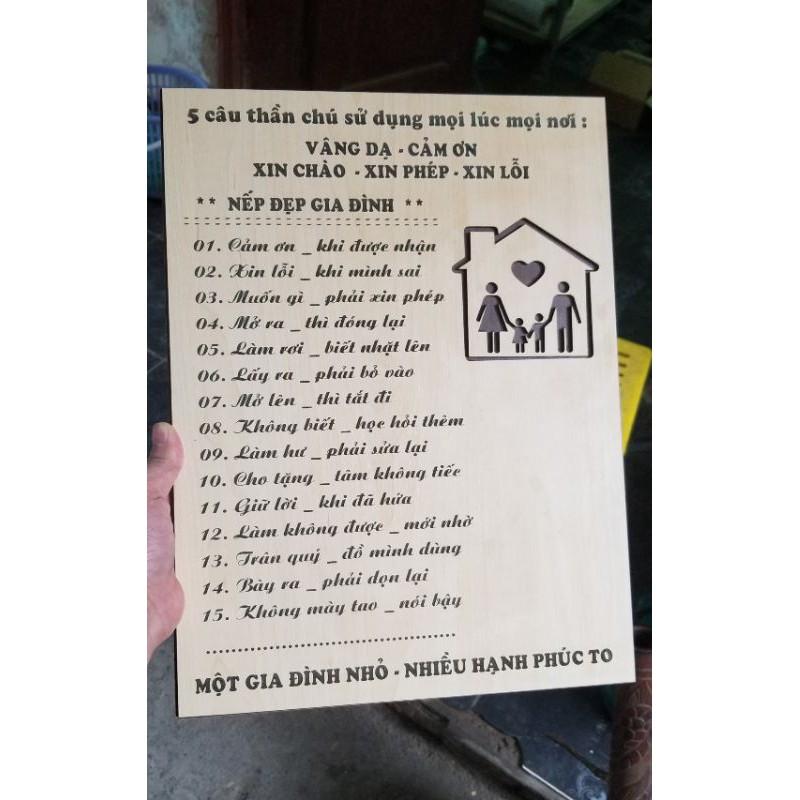 5 câu thần chú sử dụng mọi lúc mọi nơi :
VÂNG DẠ - CẢM ƠN
XIN CHÀO - XIN PHÉP - XIN LỖI
** NẾP ĐẸP GIA ĐÌNH **
01. Cảm ơn _ khi được nhận
02. Xin lỗi _ khi mình sai
03. Muốn gì _ phải xin phép
04. Mở ra _ thì đóng lại
05. Làm rơi _ biết nhặt lên
06. Lấy ra _ phải bỏ vào
07. Mở lên _ thì tắt đi
08. Không biết _ học hỏi thêm
09. Làm hư _ phải sửa lại
10. Cho tặng _ tâm không tiếc
11. Giữ lời _ khi đã hứa
12. Làm không được _ mới nhờ
13. Trân quý _ đồ mình dùng
14. Bày ra _ phải dọn lại
15. Không mày tao _ nói bậy
MỘT GIA ĐÌNH NHỎ - NHIỀU HẠNH PHÚC TO